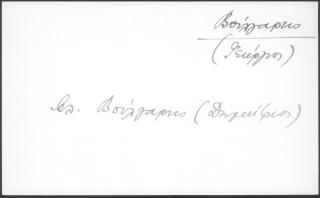 Βούλγαρης
(Γεώργιος)
βλ. Βούλγαρης (Δημήτριος)